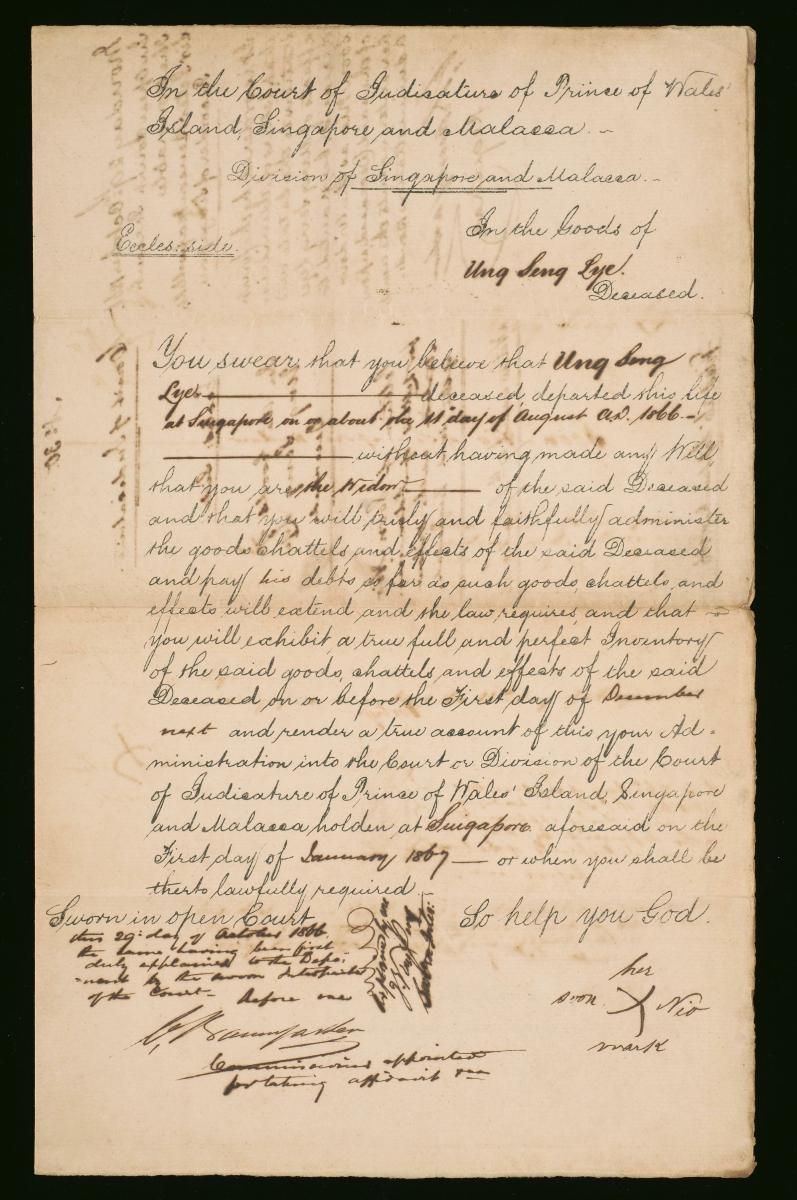 In the Court of Judicature of Prince of Wales'
Island, Singapore and Malacca.
Division of Singapore and Malacca.
Eccles: side.
In the Goods of
Ung Seng Lye.
Deceased.
You swear that you believe that Ung Seng
Lye deceased, departed this life
at Singapore on or about the 11 day of August A.D. 1866
without having made any Will,
that you are the Widow of the said Deceased
and that you will truly and faithfully administer
the goods chattels, and effects of the said Deceased
and pay his debts so far as such goods, chattels, and
effects will extend and the law requires, and that
you will exhibit a true full and perfect Inventory
of the said goods, chattels, and effects of the said
Deceased on or before the First day of December
next and render a true account of this your Ad-
ministration into the Court or Division of the Court
of Judicature of Prince of Wales' Island, Singapore
and Malacca, holden at Singapore aforesaid on the
First day of January 1867 or when you shall be
therto lawfully required.
Sworn in open Court
this 29: day of October 1866
the same having been first
duly explained to the Depo-
nent by the sworn Interpreter
of the Court Before me
So help you God.
her
Soon X Nio
mark
C, Baumgarten
Commissioner appointed
for taking affidavit